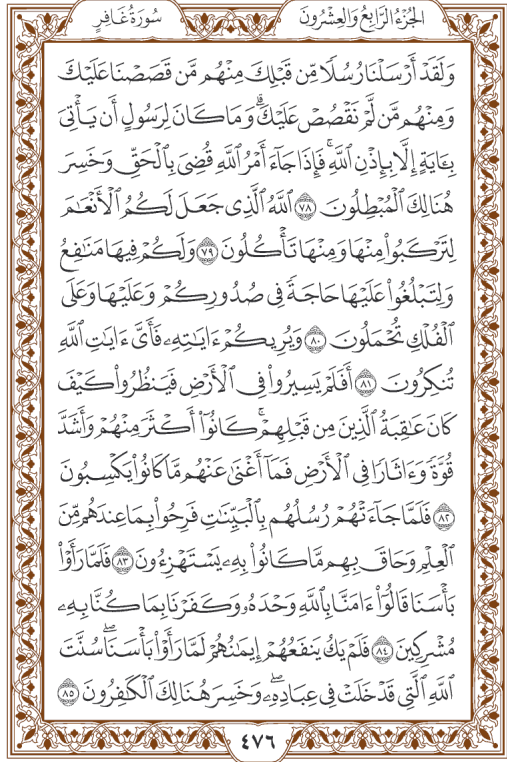 سُورَةُ غَافِرٍ
الجُزْءُ الرَّابِعُ وَالعِشْرُونَ
وَلَقَدْ أَرْسَلْنَا رُسُلًا مِّن قَبْلِكَ مِنْهُم مَّن قَصَصْنَا عَلَيْكَ
وَمِنْهُم مَّن لَّمْ نَقْصُصْ عَلَيْكَ ۗ وَمَا كَانَ لِرَسُولٍ أَن يَأْتِيَ
بِـَٔايَةٍ إِلَّا بِإِذْنِ ٱللَّهِ ۚ فَإِذَا جَآءَ أَمْرُ ٱللَّهِ قُضِىَ بِٱلْحَقِّ وَخَسِرَ
هُنَالِكَ ٱلْمُبْطِلُونَ ٧٨ ٱللَّهُ ٱلَّذِى جَعَلَ لَكُمُ ٱلْأَنْعَٰمَ
لِتَرْكَبُوا۟ مِنْهَا وَمِنْهَا تَأْكُلُونَ ٧٩ وَلَكُمْ فِيهَا مَنَٰفِعُ
وَلِتَبْلُغُوا۟ عَلَيْهَا حَاجَةً فِى صُدُورِكُمْ وَعَلَيْهَا وَعَلَى
ٱلْفُلْكِ تُحْمَلُونَ ٨٠ وَيُرِيكُمْ ءَايَٰتِهِۦ فَأَىَّ ءَايَٰتِ ٱللَّهِ
تُنكِرُونَ ٨١ أَفَلَمْ يَسِيرُوا۟ فِى ٱلْأَرْضِ فَيَنظُرُوا۟ كَيْفَ
كَانَ عَٰقِبَةُ ٱلَّذِينَ مِن قَبْلِهِمْ ۚ كَانُوٓا۟ أَكْثَرَ مِنْهُمْ وَأَشَدَّ
قُوَّةً وَءَاثَارًا فِى ٱلْأَرْضِ فَمَآ أَغْنَىٰ عَنْهُم مَّا كَانُوا۟ يَكْسِبُونَ
٨٢ فَلَمَّا جَآءَتْهُمْ رُسُلُهُم بِٱلْبَيِّنَٰتِ فَرِحُوا۟ بِمَا عِندَهُم مِّنَ
ٱلْعِلْمِ وَحَاقَ بِهِم مَّا كَانُوا۟ بِهِۦ يَسْتَهْزِءُونَ ٨٣ فَلَمَّا رَأَوْا۟
بَأْسَنَا قَالُوٓا۟ ءَامَنَّا بِٱللَّهِ وَحْدَهُۥ وَكَفَرْنَا بِمَا كُنَّا بِهِۦ
مُشْرِكِينَ ٨٤ فَلَمْ يَكُ يَنفَعُهُمْ إِيمَٰنُهُمْ لَمَّا رَأَوْا۟ بَأْسَنَا ۖ سُنَّتَ
ٱللَّهِ ٱلَّتِى قَدْ خَلَتْ فِى عِبَادِهِۦ ۖ وَخَسِرَ هُنَالِكَ ٱلْكَٰفِرُونَ ٨٥
٤٧٦